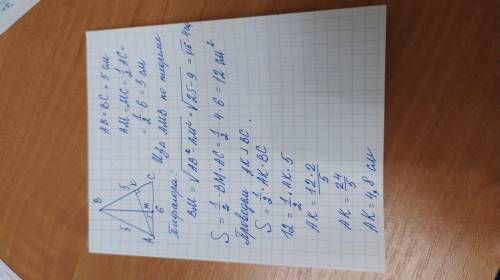 B
5
5
K
A
M
C
6
AB = BC = 5 см
AM = MC = 1/2 AC =
= 1/2 · 6 = 3 см
Из Δ AMB по теореме
Пифагора:
BM = √(AB² - AM²) = √(25 - 9) = √16 = 4 см
S = 1/2 BM · AC = 1/2 · 4 · 6 = 12 см²
Проведём AK ⊥ BC.
S = 1/2 · AK · BC
12 = 1/2 · AK · 5
AK = 12 · 2 / 5
AK = 24/5
AK = 4,8 см